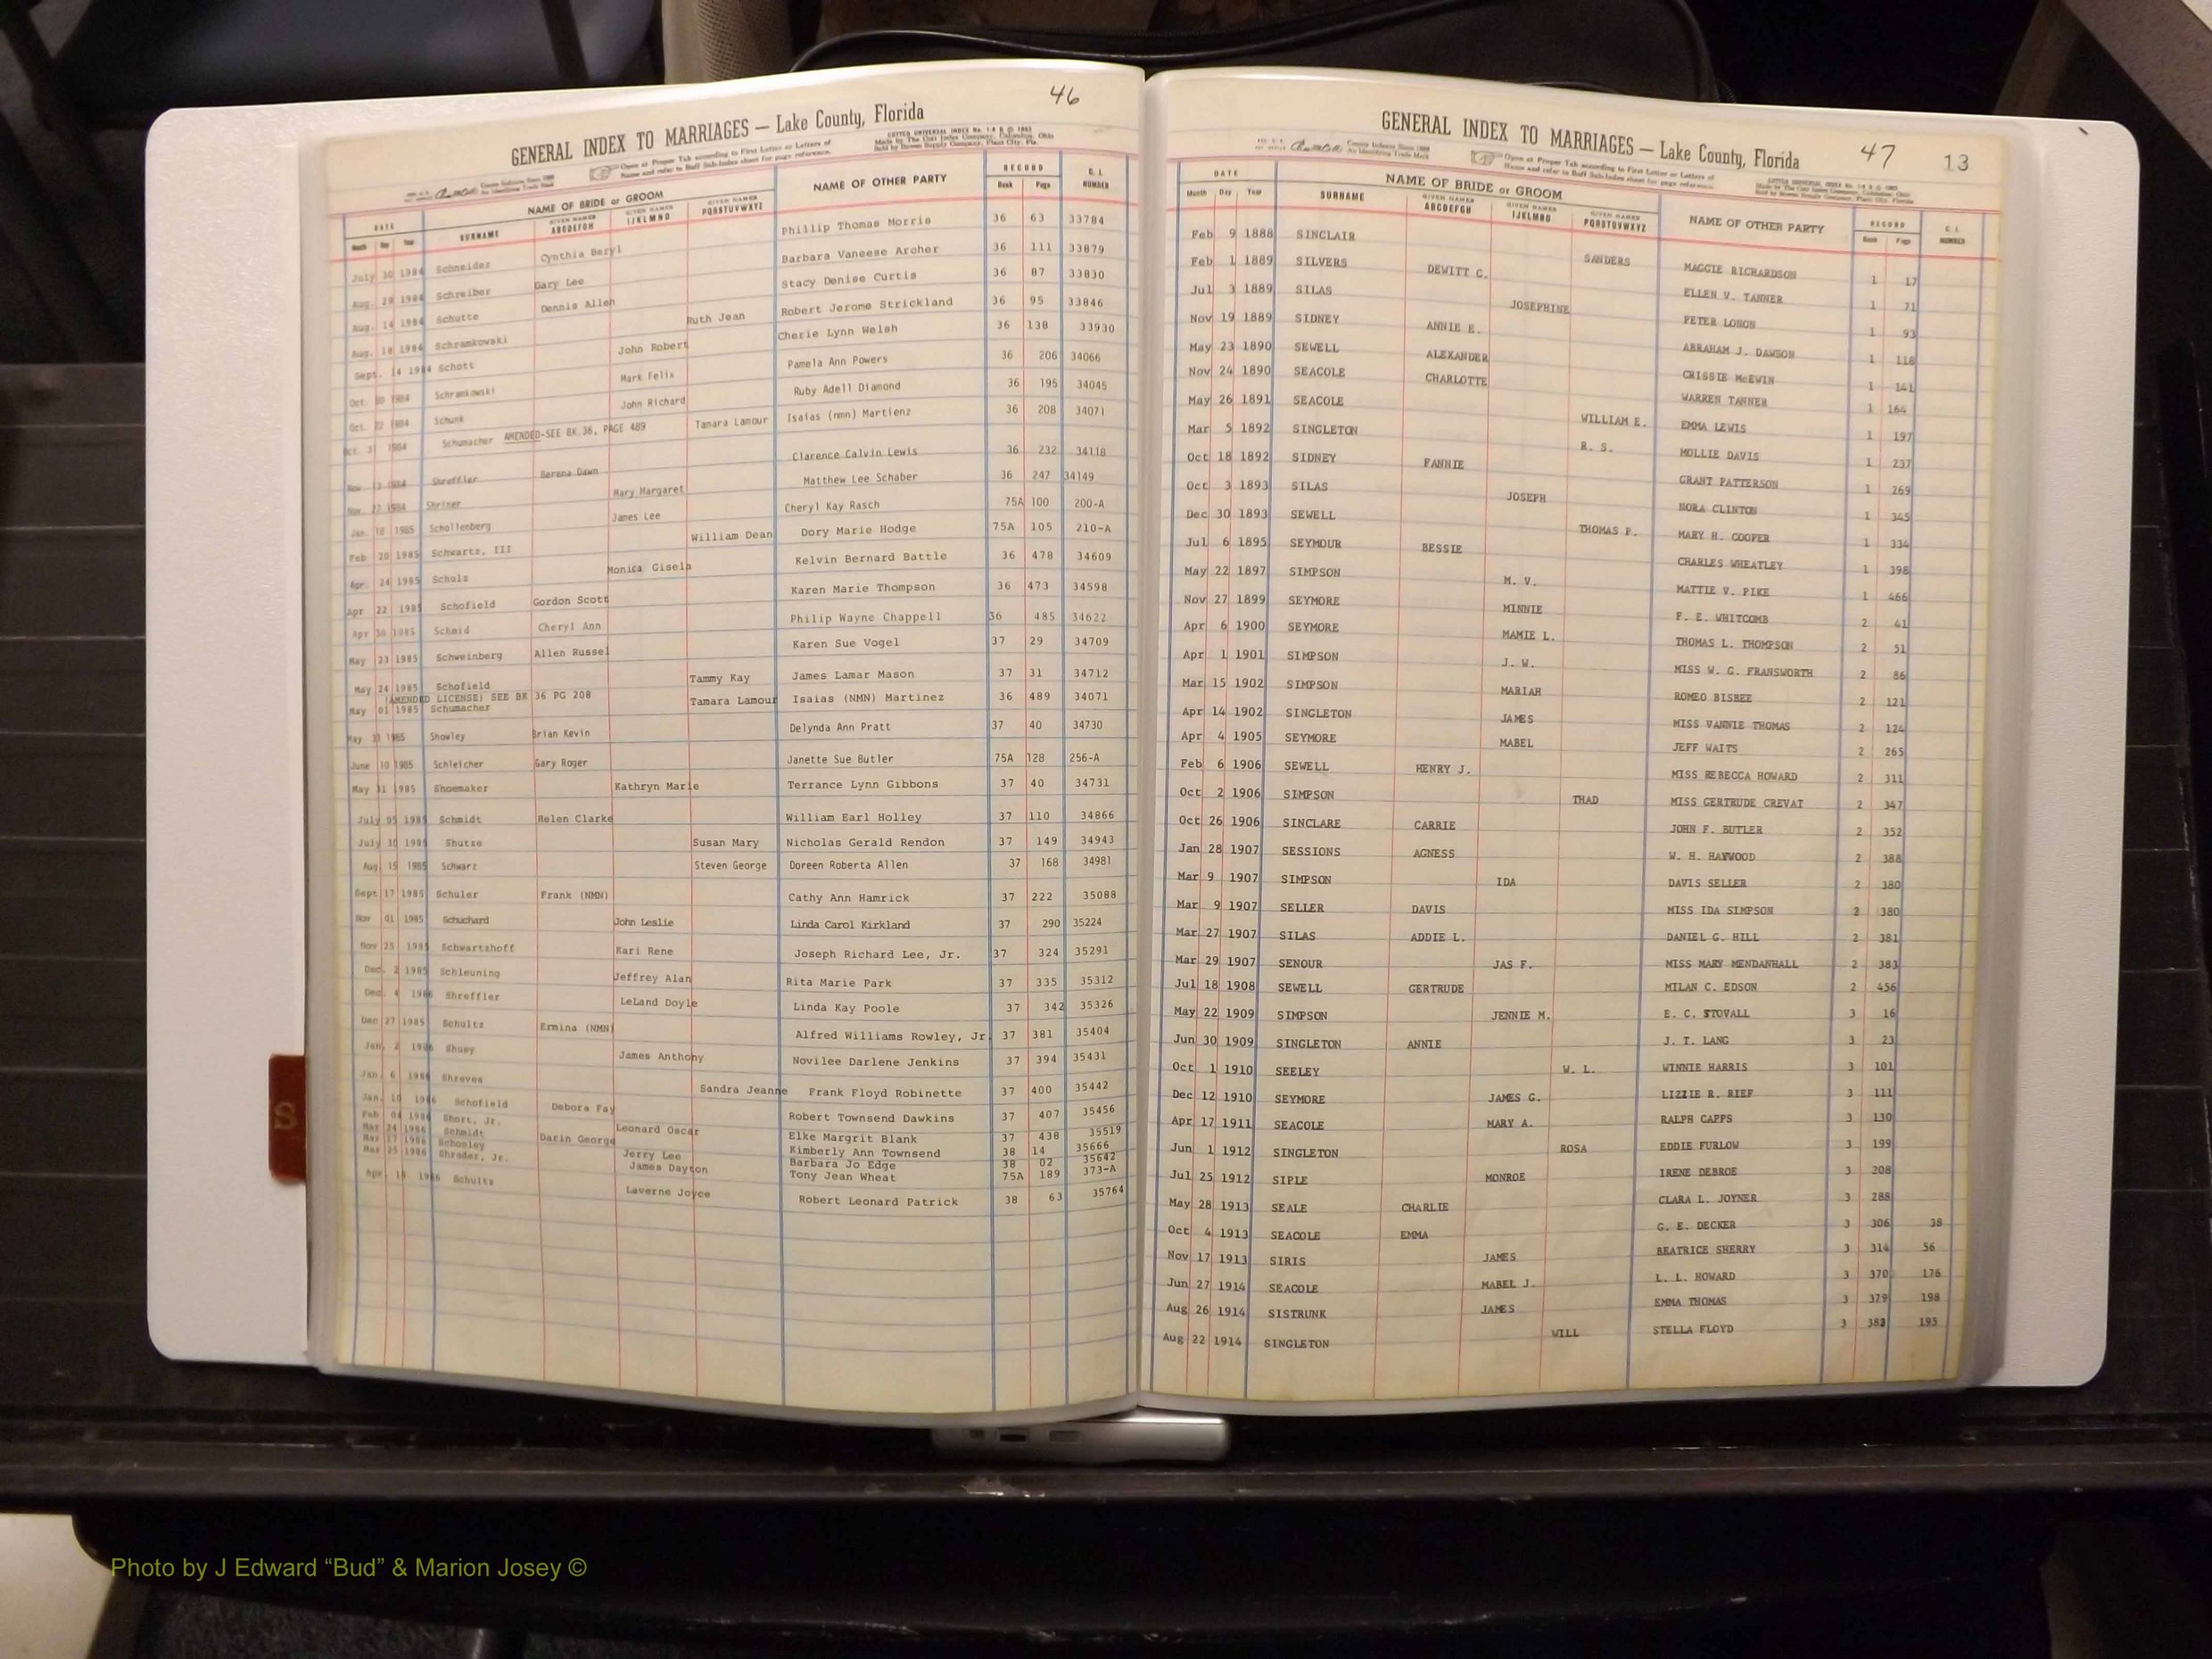 46
GENERAL INDEX TO MARRIAGES — Lake County, Florida
Open at Proper Tab according to First Letter or Letters of
Name and refer to Buff Sub-Index sheet for page reference.
DATE NAME OF BRIDE or GROOM NAME OF OTHER PARTY RECORD C. I. NUMBER
Month Day Year SURNAME GIVEN NAMES ABCDEFGH GIVEN NAMES IJKLMNO GIVEN NAMES PQRSTUVWXYZ Book Page
July 30 1984 Schneider Cynthia Beryl Phillip Thomas Morris 36 63 33784
Aug. 29 1984 Schreiber Gary Lee Barbara Vaneese Archer 36 111 33879
Aug. 14 1984 Schutte Dennis Allen Stacy Denise Curtis 36 87 33830
Aug. 18 1984 Schramkowski Ruth Jean Robert Jerome Strickland 36 95 33846
Sept. 14 1984 Schott John Robert Cherie Lynn Welsh 36 138 33930
Oct. 1984 Schramkowski Mark Felix Pamela Ann Powers 36 206 34066
Oct. 22 1984 Schunk John Richard Ruby Adell Diamond 36 195 34045
Oct. 31 1984 Schumacher AMENDED-SEE BK 36, PAGE 489 Tamara Lamour Isaias (nmn) Martienz 36 208 34071
Nov. 13 1984 Shreffler Serena Dawn Clarence Calvin Lewis 36 232 34118
Nov. 22 1984 Shriner Mary Margaret Matthew Lee Schaber 36 247 34149
Jan. 18 1985 Schollenberg James Lee Cheryl Kay Rasch 75A 100 200-A
Feb 20 1985 Schwartz, III William Dean Dory Marie Hodge 75A 105 210-A
Apr. 24 1985 Schulz Monica Gisela Kelvin Bernard Battle 36 478 34609
Apr 22 1985 Schofield Gordon Scott Karen Marie Thompson 36 473 34598
Apr 30 1985 Schmid Cheryl Ann Philip Wayne Chappell 36 485 34622
May 23 1985 Schweinberg Allen Russel Karen Sue Vogel 37 29 34709
May 24 1985 Schofield Tammy Kay James Lamar Mason 37 31 34712
(AMENDED LICENSE) SEE BK 36 PG 208
May 01 1985 Schumacher Tamara Lamour Isaias (NMN) Martinez 36 489 34071
May 31 1985 Showley Brian Kevin Delynda Ann Pratt 37 40 34730
June 10 1985 Schleicher Gary Roger Janette Sue Butler 75A 128 256-A
May 31 1985 Shoemaker Kathryn Marie Terrance Lynn Gibbons 37 40 34731
July 05 1985 Schmidt Helen Clarke William Earl Holley 37 110 34866
July 30 1985 Shutse Susan Mary Nicholas Gerald Rendon 37 149 34943
Aug. 15 1985 Schwarz Steven George Doreen Roberta Allen 37 168 34981
Sept 17 1985 Schuler Frank (NMN) Cathy Ann Hamrick 37 222 35088
Nov 01 1985 Schuchard John Leslie Linda Carol Kirkland 37 290 35224
Nov 25 1985 Schwartzhoff Kari Rene Joseph Richard Lee, Jr. 37 324 35291
Dec. 2 1985 Schleuning Jeffrey Alan Rita Marie Park 37 335 35312
Dec. 4 1986 Shreffler LeLand Doyle Linda Kay Poole 37 342 35326
Dec 27 1985 Schultz Ermina (NMN) Alfred Williams Rowley, Jr. 37 381 35404
Jan. 2 1986 Shuey James Anthony Novilee Darlene Jenkins 37 394 35431
Jan. 6 1986 Shreves Sandra Jeanne Frank Floyd Robinette 37 400 35442
Jan. 10 1986 Schofield Debora Fay Robert Townsend Dawkins 37 407 35456
Feb 04 1986 Short, Jr. Leonard Oscar Elke Margrit Blank 37 438 35519
Mar 24 1986 Schmidt Darin George Kimberly Ann Townsend 38 14 35666
Mar 17 1986 Schooley Jerry Lee Barbara Jo Edge 38 02 35642
Mar 25 1986 Shrader, Jr. James Dayton Tony Jean Wheat 75A 189 373-A
Apr. 18 1986 Schultz Laverne Joyce Robert Leonard Patrick 38 63 35764
S
GENERAL INDEX TO MARRIAGES — Lake County, Florida 47 13
Open at Proper Tab according to First Letter or Letters of
Name and refer to Buff Sub-Index sheet for page reference.
DATE NAME OF BRIDE or GROOM NAME OF OTHER PARTY RECORD C. I. NUMBER
Month Day Year SURNAME GIVEN NAMES ABCDEFGH GIVEN NAMES IJKLMNO GIVEN NAMES PQRSTUVWXYZ Book Page
Feb 9 1888 SINCLAIR SANDERS MAGGIE RICHARDSON 1 17
Feb 1 1889 SILVERS DEWITT C. ELLEN V. TANNER 1 71
Jul 3 1889 SILAS JOSEPHINE PETER LONON 1 93
Nov 19 1889 SIDNEY ANNIE E. ABRAHAM J. DAWSON 1 118
May 23 1890 SEWELL ALEXANDER CRISSIE McEWIN 1 141
Nov 24 1890 SEACOLE CHARLOTTE WARREN TANNER 1 164
May 26 1891 SEACOLE WILLIAM E. EMMA LEWIS 1 197
Mar 5 1892 SINGLETON R. S. MOLLIE DAVIS 1 237
Oct 18 1892 SIDNEY FANNIE GRANT PATTERSON 1 269
Oct 3 1893 SILAS JOSEPH NORA CLINTON 1 345
Dec 30 1893 SEWELL THOMAS P. MARY H. COOPER 1 334
Jul 6 1895 SEYMOUR BESSIE CHARLES WHEATLEY 1 398
May 22 1897 SIMPSON M. V. MATTIE V. PIKE 1 466
Nov 27 1899 SEYMORE MINNIE F. E. WHITCOMB 2 41
Apr 6 1900 SEYMORE MAMIE L. THOMAS L. THOMPSON 2 51
Apr 1 1901 SIMPSON J. W. MISS W. G. FRANSWORTH 2 86
Mar 15 1902 SIMPSON MARIAH ROMEO BISBEE 2 121
Apr 14 1902 SINGLETON JAMES MISS VANNIE THOMAS 2 124
Apr 4 1905 SEYMORE MABEL JEFF WAITS 2 265
Feb 6 1906 SEWELL HENRY J. MISS REBECCA HOWARD 2 311
Oct 2 1906 SIMPSON THAD MISS GERTRUDE CREVAT 2 347
Oct 26 1906 SINCLARE CARRIE JOHN F. BUTLER 2 352
Jan 28 1907 SESSIONS AGNESS W. H. HAYWOOD 2 388
Mar 9 1907 SIMPSON IDA DAVIS SELLER 2 380
Mar 9 1907 SELLER DAVIS MISS IDA SIMPSON 2 380
Mar 27 1907 SILAS ADDIE L. DANIEL G. HILL 2 381
Mar 29 1907 SENOUR JAS F. MISS MARY MENDANHALL 2 383
Jul 18 1908 SEWELL GERTRUDE MILAN C. EDSON 2 456
May 22 1909 SIMPSON JENNIE M. E. C. STOVALL 3 16
Jun 30 1909 SINGLETON ANNIE J. T. LANG 3 23
Oct 1 1910 SEELEY W. L. WINNIE HARRIS 3 101
Dec 12 1910 SEYMORE JAMES G. LIZZIE R. RIEF 3 111
Apr 17 1911 SEACOLE MARY A. RALPH CAPPS 3 130
Jun 1 1912 SINGLETON ROSA EDDIE FURLOW 3 199
Jul 25 1912 SIPLE MONROE IRENE DEBROE 3 208
May 28 1913 SEALE CHARLIE CLARA L. JOYNER 3 288
Oct 4 1913 SEACOLE EMMA G. E. DECKER 3 306 38
Nov 17 1913 SIRIS JAMES BEATRICE SHERRY 3 314 56
Jun 27 1914 SEACOLE MABEL J. L. L. HOWARD 3 370 176
Aug 26 1914 SISTRUNK JAMES EMMA THOMAS 3 379 198
Aug 22 1914 SINGLETON WILL STELLA FLOYD 3 382 195
Photo by J Edward “Bud” & Marion Josey ©